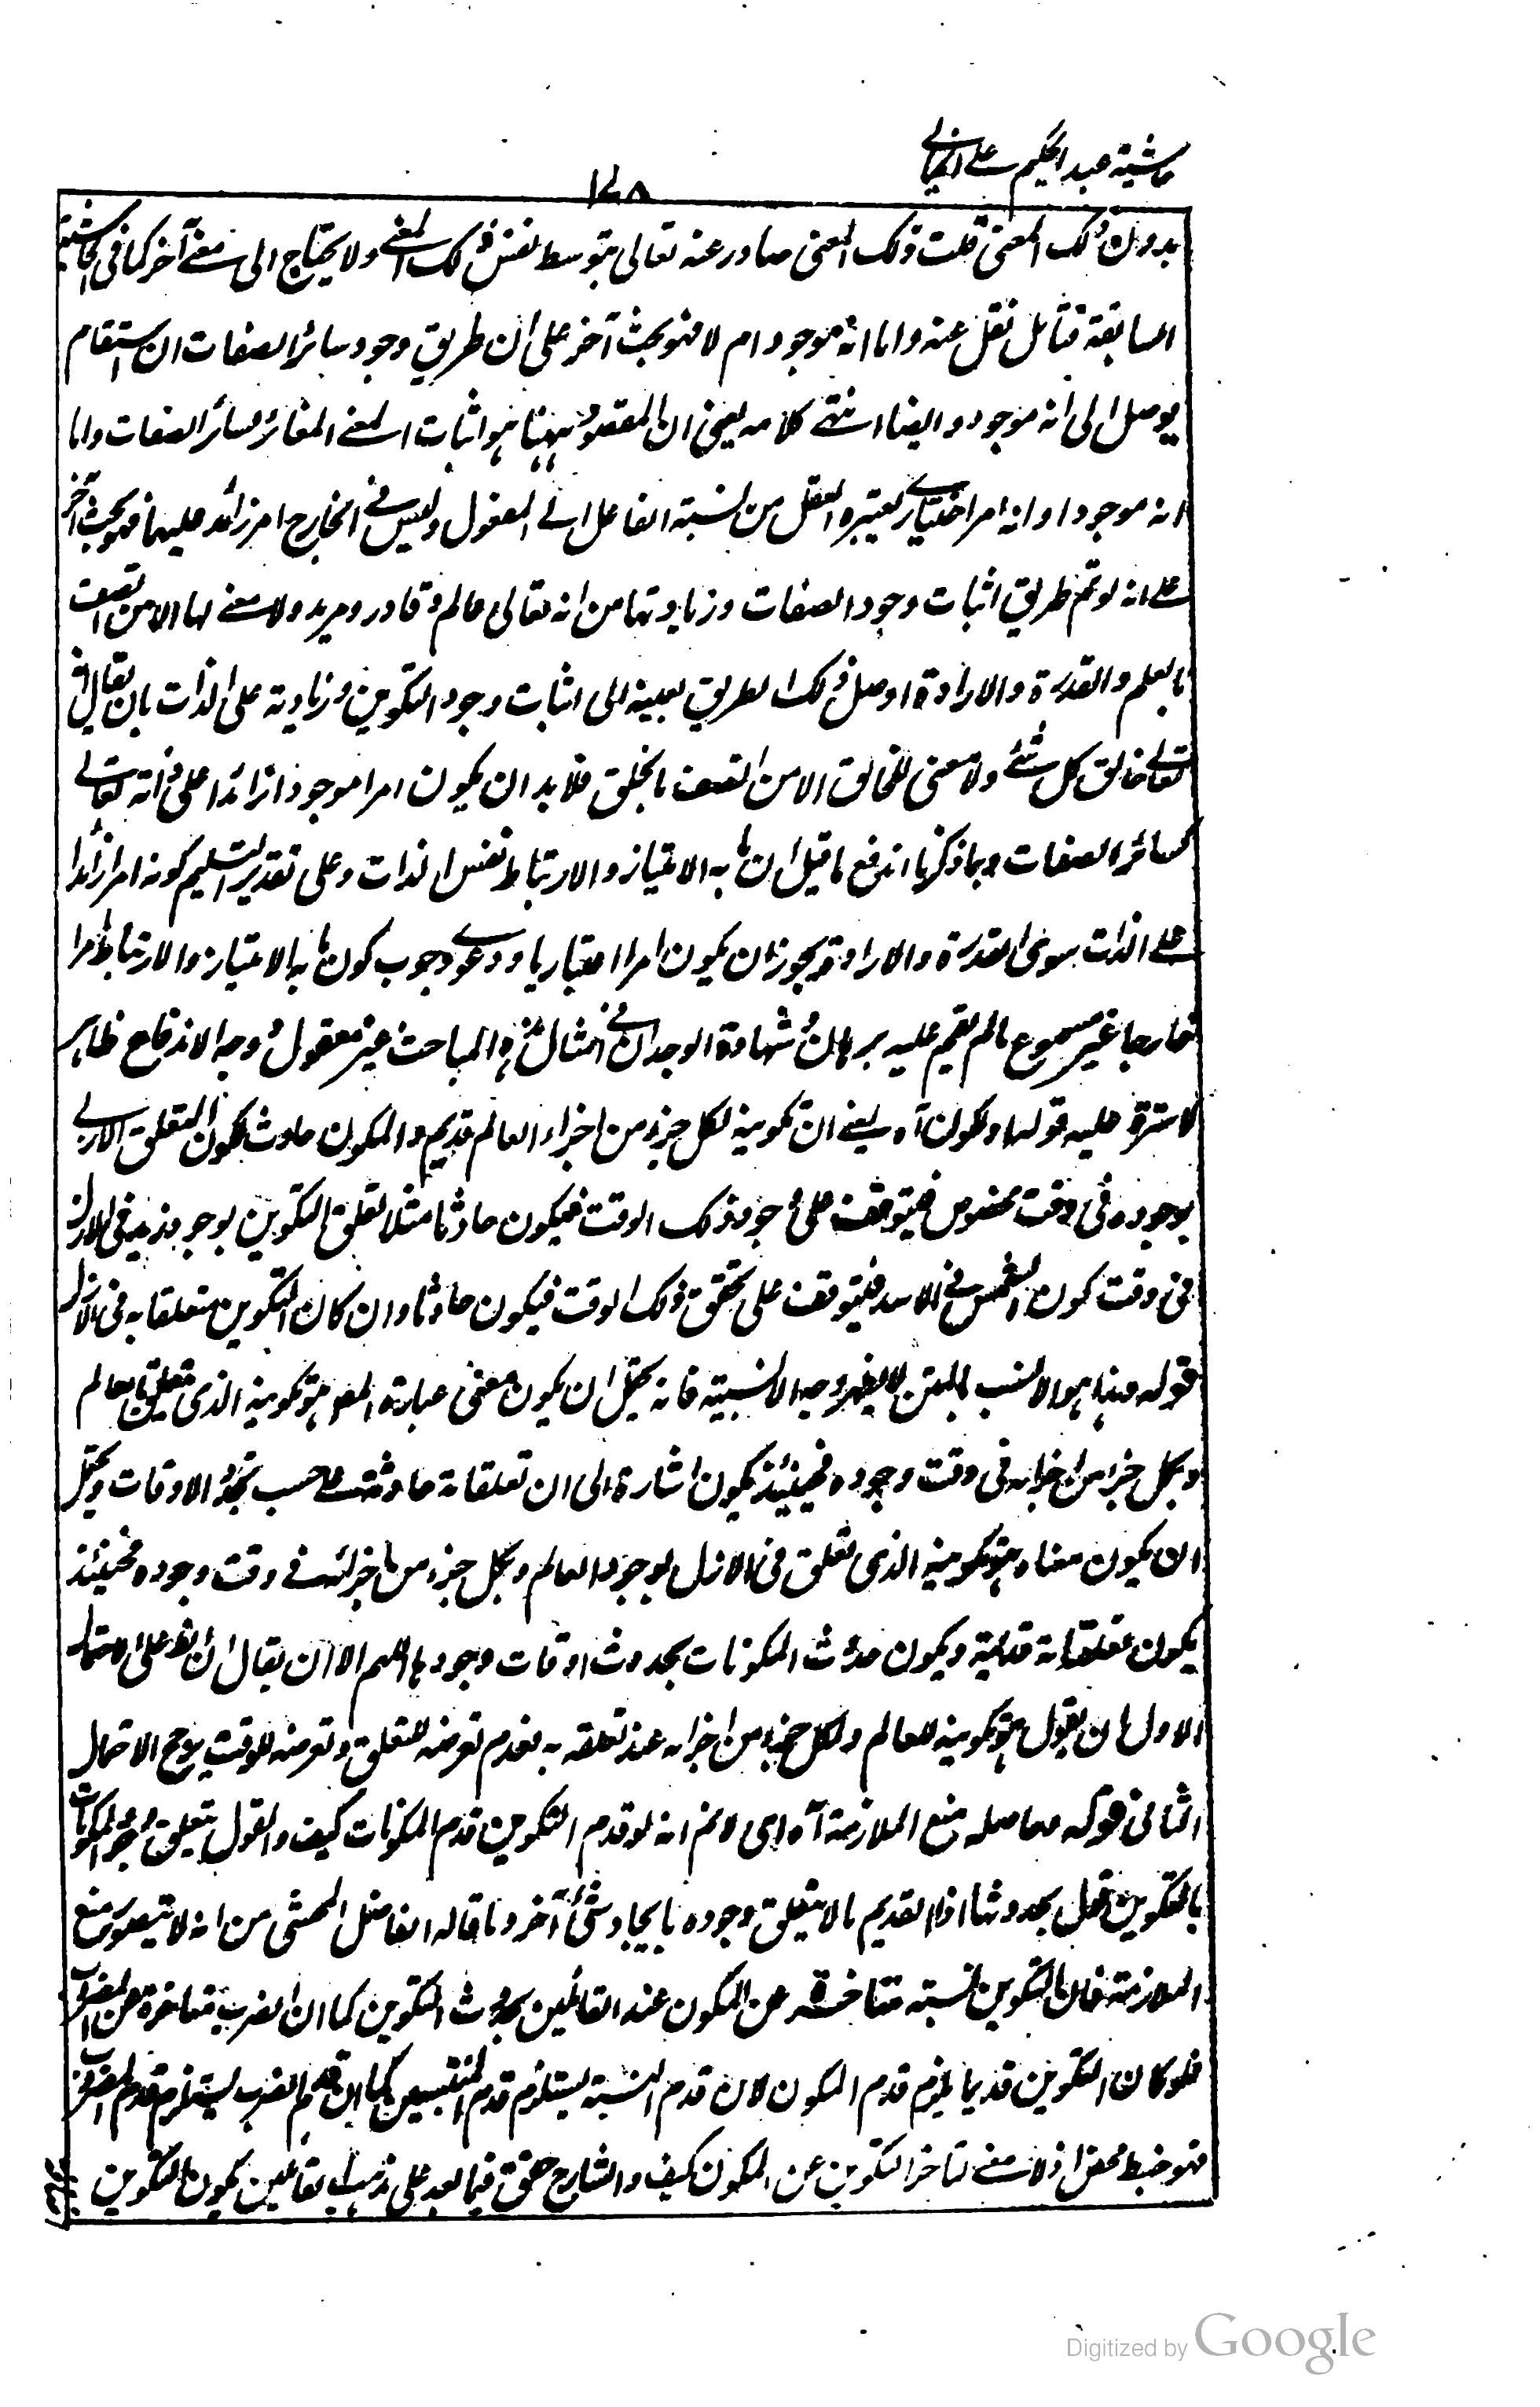 حاشية عبد الحكيم على الخيالي
١٤٨
بدون ذلك المعنى قلت ذلك المعنى صادر عنه تعالى بتوسط نفس ذلك المعنى ولا يحتاج الى معنى آخر كما في الحاشية
السابقة فتأمل نقل عنه واما انه موجود ام لا فهو بحث آخر على ان طريق وجود سائر الصفات ان استقام
يوصل الى انه موجود ايضا انتهى كلامه يعنى ان المقصود ههنا هو اثبات المعنى المغائر لسائر الصفات واما
انه موجود او انه امر اعتبارى يعتبره العقل من نسبة الفاعل الى المفعول وليس فى الخارج امر زائد عليها فهو بحث آخر
على انه لو تم طريق اثبات وجود الصفات وزيادتها من انه تعالى عالم وقادر ومريد ولا معنى لها الا من اتصف
بالعلم والقدرة والارادة اوصل ذلك الطريق بعينه الى اثبات وجود التكوين وزيادته على الذات بان يقال انه
تعالى خالق كل شئ ولا معنى للخالق الا من اتصف بالخلق فلا بد ان يكون امرا موجودا زائدا على ذاته تعالى
كسائر الصفات وبما ذكرنا اندفع ما قيل ان ما به الامتياز والارتباط نفس الذات وعلى تقدير التسليم كونه امرا زائدا
على الذات سوى القدرة والارادة يجوز ان يكون امرا اعتباريا ودعوى وجوب كون ما به الامتياز والارتباط امرا
خارجا غير مسموع ما لم يقم عليه برهان وشهادة الوجدان فى امثال هذه المباحث غير معقول وجه الاندفاع ظاهر
لا سترة عليه قوله ولكون آه يعنى ان تكوينه لكل جزء من اجزاء العالم قديم والمكون حادث لكون التعلق الازلى
بوجوده فى وقت مخصوص فيتوقف على وجود ذلك الوقت فيكون حادثا مثلا تعلق التكوين بوجود زيد فى الازل
فى وقت كون الشمس فى الاسد فيتوقف على تحقق ذلك الوقت فيكون حادثا وان كان التكوين متعلقا به فى الازل
قوله هذا هو الانسب بالمتن لا يظهر وجه الانسبية فانه يحتمل ان يكون معنى عبارة المص هو تكوينه الذى تعلق بالعالم
وبكل جزء من اجزائه فى وقت وجوده فحينئذ يكون اشارة الى ان تعلقاته حادثة على حسب تجدد الاوقات ويحتمل
ان يكون معناه هو تكوينه الذى تعلق فى الازل بوجود العالم وبكل جزء من اجزائه فى وقت وجوده فحينئذ
يكون تعلقاته قديمة ويكون حدوث المكونات بحدوث اوقات وجودها اللهم الا ان يقال ان الظ على الاحتمال
الاول ان يقول هو تكوينه للعالم ولكل جزء من اجزائه عند تعلقه به فعدم تعرضه للتعلق وتعرضه للوقت يرجح الاحتمال
الثانى قوله حاصله منع الملازمة آه اى لا نم انه لو قدم التكوين قدم المكونات كيف والقول بتعلق وجود المكونات
بالتكوين قول بحدوثها اذ القديم ما لا يتعلق وجوده بايجاد شئ آخر وما قاله الفاضل المحشى من انه لا يتصور منع
الملازمة فان التكوين نسبة متأخرة عن المكون عند القائلين بحدوث التكوين كما ان الضرب متأخرة عن المضروب
فلو كان التكوين قديما يلزم قدم المكون لان قدم النسبة يستلزم قدم المنتسبين كما ان قدم الضرب يستلزم قدم المضروب
فهو خبط محض اذ لا معنى لتأخر التكوين عن المكون كيف والشارح حقق فيما بعد على مذهب القائلين بكون التكوين